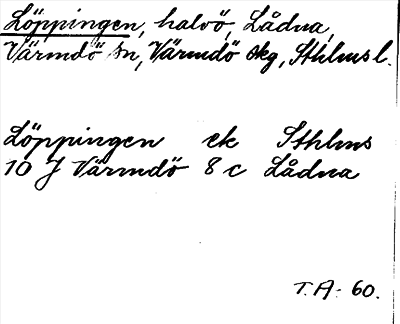 Löppingen, halvö, Lådna,
Värmdö sn, Värmdö skg, Sthlms l.
Löppingen ek Sthlms
10 J Värmdö 8 c Lådna
T.A. 60.